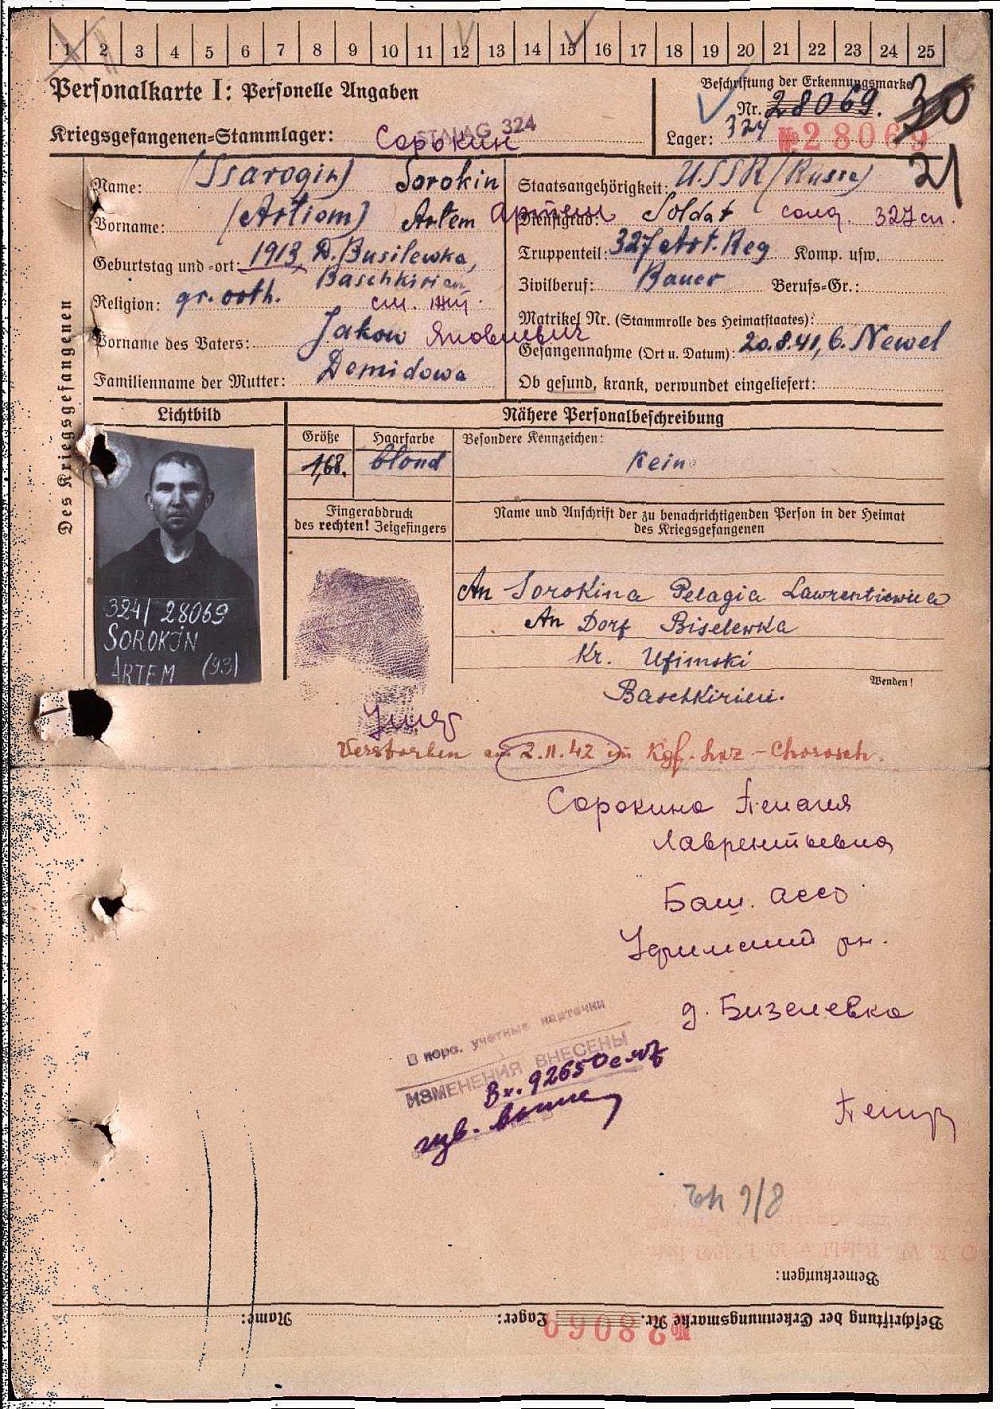 1 2 3 4 5 6 7 8 9 10 11 12 13 14 15 16 17 18 19 20 21 22 23 24 25
Personalkarte I: Personelle Angaben
Beschriftung der Erkennungsmarke
Nr. 28069. 30
Kriegsgefangenen-Stammlager: STALAG 324
Сорокин
Lager: 324 № 28069
21
Des Kriegsgefangenen
Name: (Ssarogin) Sorokin
Vorname: (Artiom) Artem Артем
Geburtstag und -ort: 1913 D. Busilewka,
Baschkirien
Religion: gr. orth.
Vorname des Vaters: Jakow Яковлевич
Familienname der Mutter: Demidowa
Staatsangehörigkeit: USSR (Russe)
Dienstgrad: Soldat солд. 327 сп.
Truppenteil: 327 Art. Reg Komp. usw.
Zivilberuf: Bauer Berufs-Gr.:
Matrikel Nr. (Stammrolle des Heimatstaates):
Gefangennahme (Ort u. Datum): 20.8.41, b. Newel
Ob gesund, krank, verwundet eingeliefert:
Lichtbild
Nähere Personalbeschreibung
Größe Haarfarbe Besondere Kennzeichen:
1,68. blond Kein
Fingerabdruck
des rechten! Zeigefingers
Name und Anschrift der zu benachrichtigenden Person in der Heimat
des Kriegsgefangenen
324/ 28069
SOROKIN
ARTEM (93)
An Sorokina Pelagia Lawrentiewna
An Dorf Biselewka
Kr. Ufimski
Wenden!
Baschkirien.
Verstorben am 2.11.42 im Kgf. Laz - Chorosch.
Сорокина Пелагия
Лаврентьевна
Баш. АССР
Уфимский рн.
д. Бизелевка
В корр. учетные карточки
ИЗМЕНЕНИЯ ВНЕСЕНЫ
Вх. 92650
9/8
Bemerkungen:
Beschriftung der Erkennungsmarke Nr. № 28069 Lager: Name: